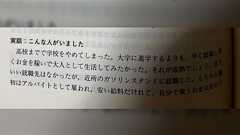 実話：こんな人がいました
高校までで学校をやめてしまった。大学に進学するよりも、早く就職し
くお金を稼いで大人として生活してみたかった。それが成熟でしょう。
いい就職先はなかったが、近所のガソリンスタンドに就職し、もちろん
初はアルバイトとして雇われ、安い給料だけれど、自分で使うお金